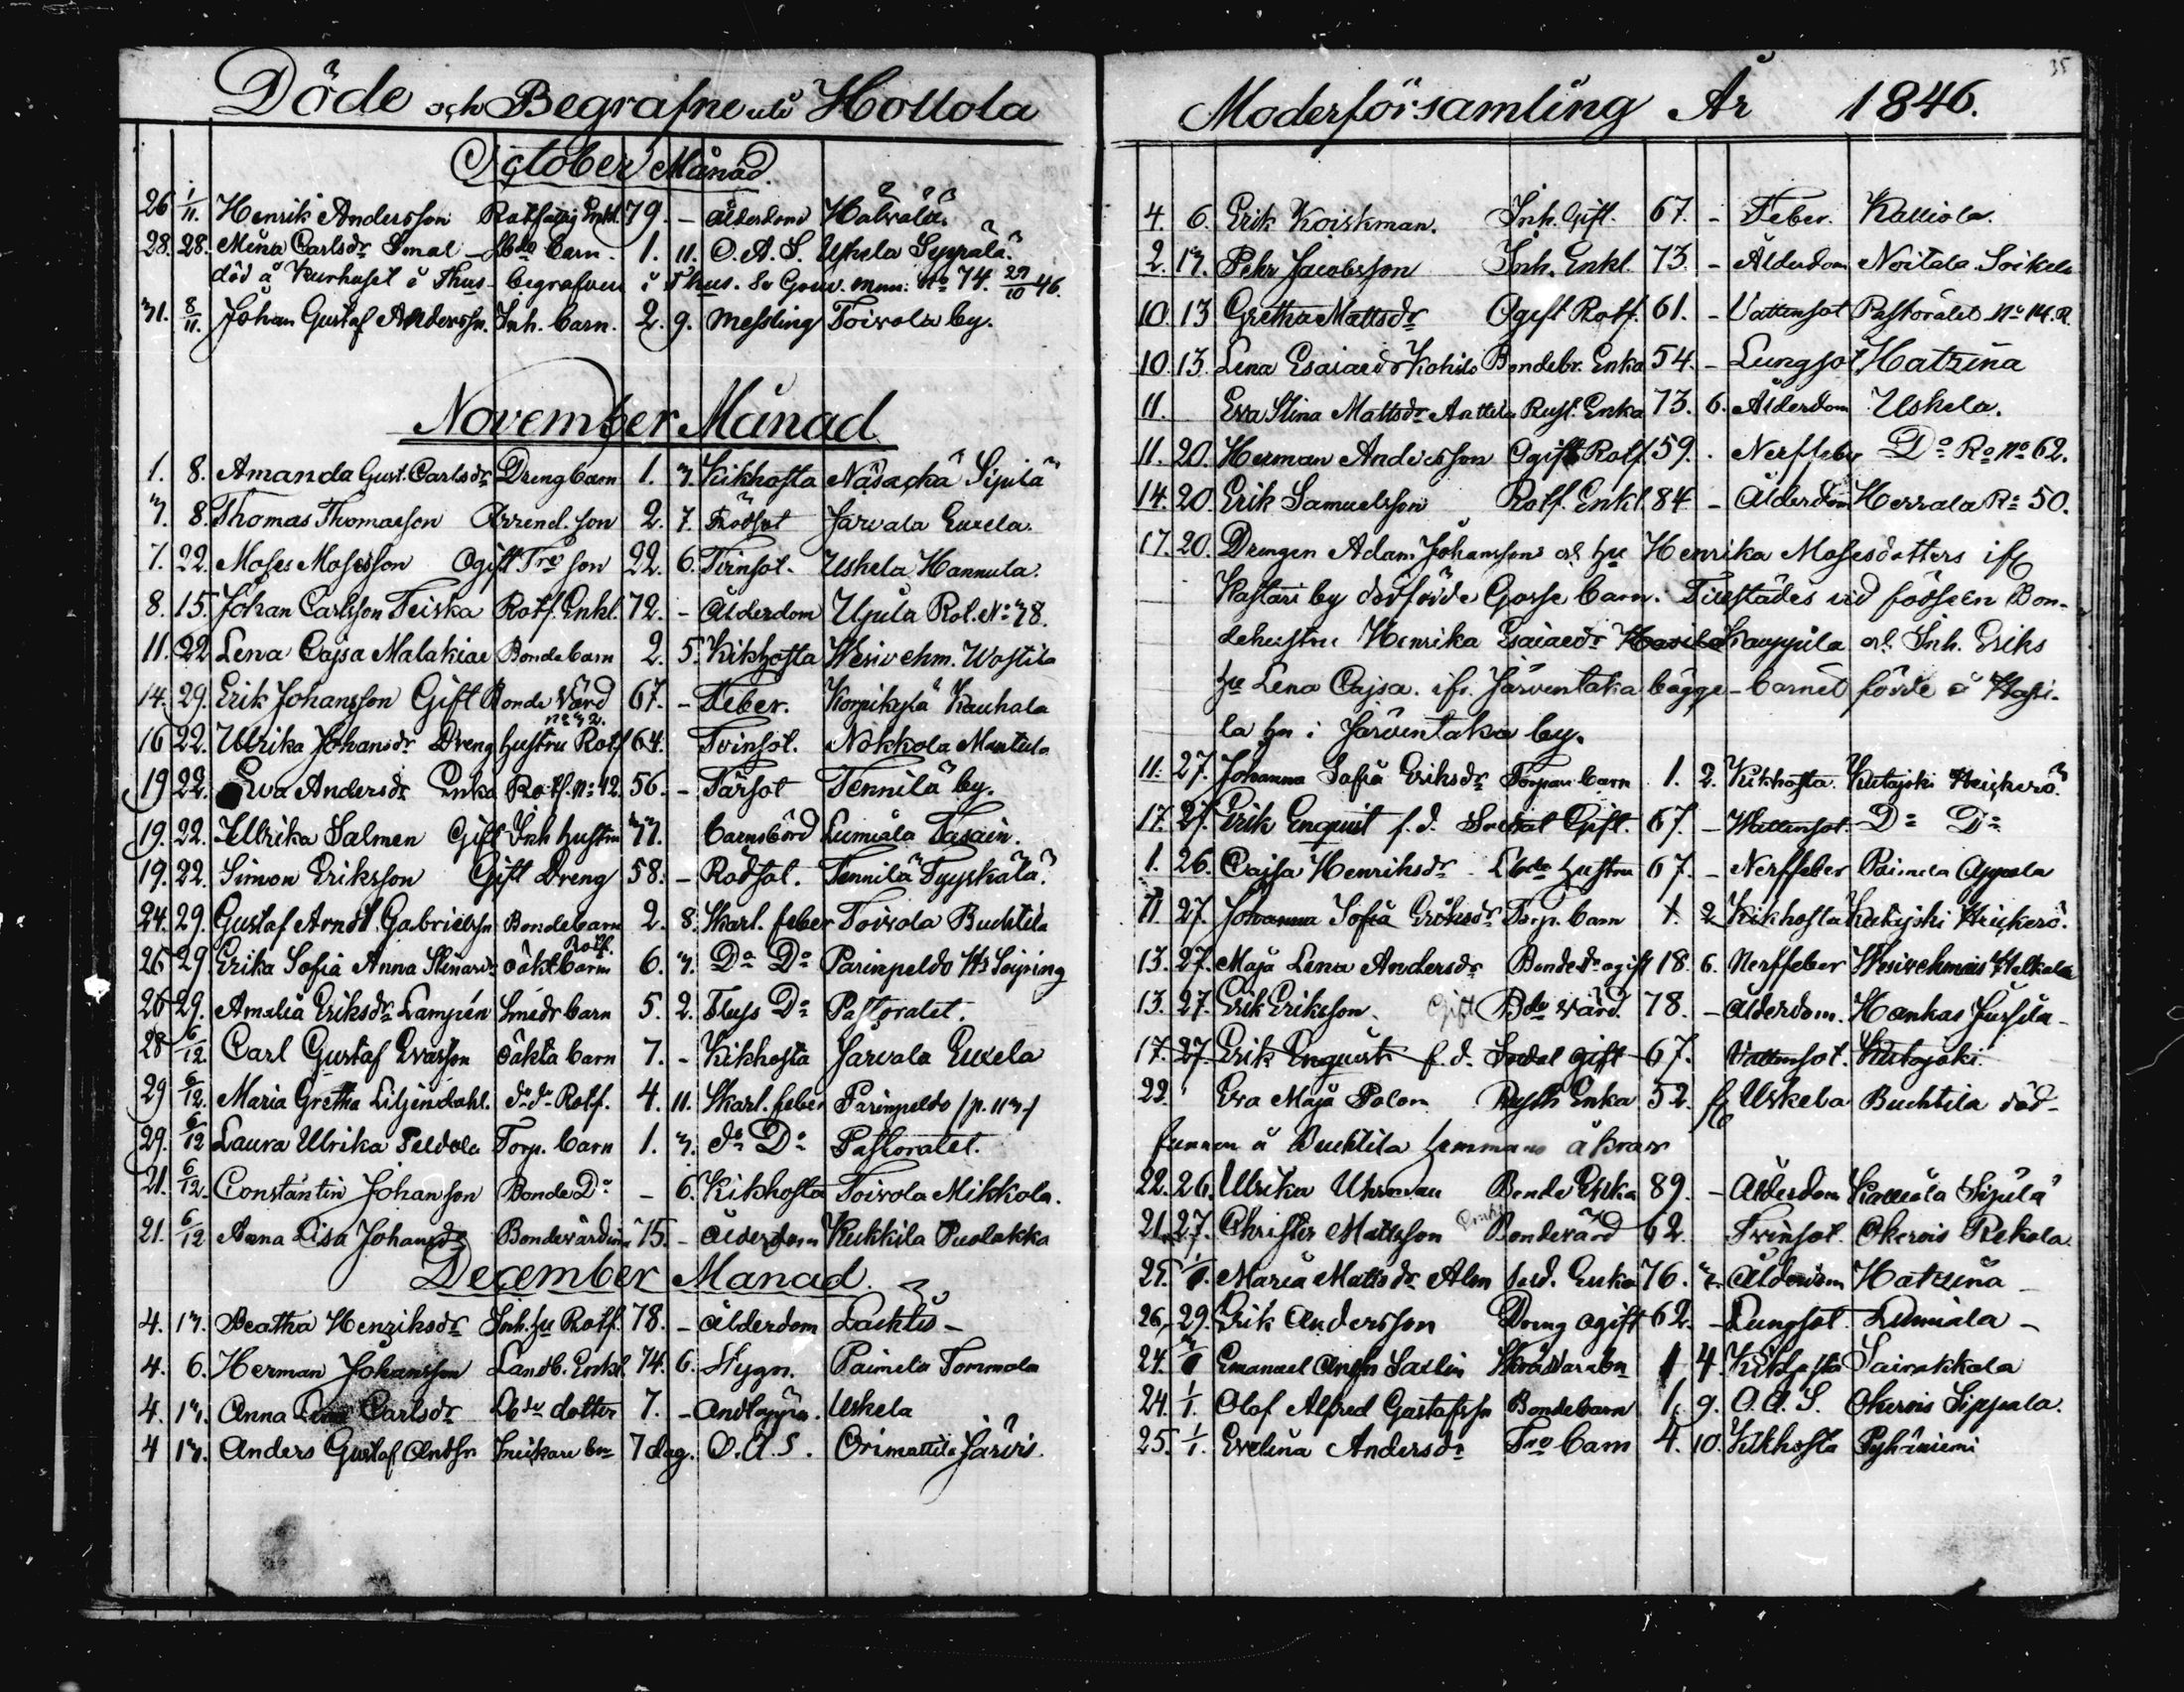 Döde och Begrafne uti Hollola
October Månad.
26 1/11. Henrik Andersson Rotfattig Enkl. 79. - Ålderdom Hälvälä.
28. 28. Mina Carlsdr Smal Barn. 1. 11. O. A. S. Uskela Seppälä.
död å Kurhuset i Thus begrafven i Thus. Gouv. No 74. 29/10 46.
31. 8/11. Johan Gustaf Andersson. Inh. barn. 2. 9. Messling Toivola by.
November Månad
1. 8. Amanda Gust. Carlsdr Dreng barn 1. 3. Kikhosta Näsackä Sipilä
3. 8. Thomas Thomasson Arrend. son 2. 7. Rödsot Jarvala Euxela.
7. 22. Moses Mosesson Ogift Tro son 22. 6. Tvinsot. Uskela Hannula.
8. 15. Johan Carlsson Teiska Rotf. Enkl. 72. - Ålderdom Upila Rot. No 38.
11. 22 Lena Cajsa Malakiae Bondebarn 2. 5. Kikhosta Wesivehm. Wastila
14. 29. Erik Johansson Gift Bonde Värd 67. - Feber. Korpikylä Kauhala
16 22. Ulrika Johansdr Dreng hustru Rotf 64. Tvinsot. Nokkola Mantula
19 22. Eva Andersdr Enka Rotf. No 42. 56. - Tärsot Tennilä by.
19. 22. Ullrika Salmen Gift Inh hustru 33. barnsbörd Lumiala Tasain.
19. 22. Simon Eriksson Gift Dreng 58. - Rödsot. Tennilä Tyyskälä.
24. 29. Gustaf Arndt Gabrielssn Bondebarn 2. 8. Skarl. feber Toivola Buchtila
26 29. Erika Sofia Anna oäkt barn Rotf. 6. 3. Do Do Parinpeldo
26 29. Amalia Eriksdr Lampén Smeds barn 5. 2. Do Pastoralet.
28 6/12. Carl Gustaf Evasson oäkta barn 7. - Kikhosta Jarvala Euxela
29 6/12. Maria Gretha Liljendahl. do do Rotf. 4. 11. Skarl. feber Parinpeldo /p. 113./
29. 6/12 Laura Ulrika Peldola Torp. barn 1. 3. do Do Pastoralet.
21. 6/12. Constantin Johanson Bonde Do - 6. Kikhosta Toivola Mikkola.
21. 6/12 Anna Lisa Johansdr Bondevärdinna 75. - Ålderdom Kukkila Puolakka
December Månad.
4. 13. Beatha Henriksdr Inh. hu Rotf. 78. - Ålderdom Lachtis -
4. 6. Herman Johansson Landb. Enkl. 74. 6. Stygn. Paimela Tommola
4. 13. Anna Carlsdr dotter 7. - Andtäppa. Uskela
4 13. Anders Gustaf Andsn Snickare bn 7 dag. O. A. S. Orimattila Järvis.
35
Moderförsamling År 1846.
4. 6. Erik Koiskman. Inh. Gift. 67. - Feber. Kalliola.
2. 13. Pehr Jacobsson Inh. Enkl. 73. - Ålderdom Noitala Soikela
10. 13 Gretha Mattsdr Ogift Rotf. 61. - Vattensot Pastoralet No 14. R.
10. 13. Lena Esaiaedr Kohilo Bondebr. Enka 54. - Lungsot Hatzina
11. Eva Stina Mattsdr Anttila Rust. Enka 73. 6. Ålderdom Uskela.
11. 20. Herman Andersson Ogift Rotf. 59. . Nerffeber Do Ro No 62.
14. 20. Erik Samuelsson Rotf. Enkl. 84 - Ålderdom Herrala Ro 50.
17. 20. Drengen Adam Johanssons och hu Henrika Mosesdotters ifr
Hastari by dödfödde Gosse barn. Tillstädes vid födseln Bon-
dehustru Henrika Esaiaedr Kauppila och Inh. Eriks
hu Lena Cajsa. ifr. Järventaka bägge - barnet födde å Hasi-
la hn i Järventaka by.
11. 27. Johanna Sofia Eriksdr Torpare barn 1. 2. Kikhosta. Kutajoki Heickerö.
17. 27. Erik Enquist f. d. Soldat Gift. 67. - Wattensot. Do Do
1. 26. Cajsa Henriksdr hustru 67. - Nerffeber Paimela Uppola
11 27. Johanna Sofia Eriksdr Torp. barn 1. 2 Kikhosta Kutajoki Heickerö.
13. 27. Maja Lena Andersdr Bonde Dr ogift 18. 6. Nerffeber Wesivehmais
13. 27. Erik Eriksson. Gift Värd. 78. - Ålderdom. Hankas Jussila -
17. 27. Erik Enquist f. d. Soldat gift 67. Vattensot. Kutajoki.
22. Eva Maja Polon Rusth Enka 52. fr Uskela Buchtila död-
funnen å Buchtila hemmans åkrar
22. 26. Ulrika Uhrman Bonde Enka 89. - Ålderdom Kalliola Sipilä
21. 27. Christer Mattsson Bondevärd 62. Tvinsot. Okerois Rekola.
25. Maria Mattsdr Alm Sold. Enka 76. 3. Ålderdom Hatzina
26. 29. Erik Andersson Dreng ogift 62. - Lungsot Lumiala -
24. Emanuel Sailin 1 4. Kikhosta Sairakkala
24. 1/1. Olof Alfred Gustafssn Bondebarn 1. 9. O. A. S. Okerois Sippala.
25. 1/1. Evelina Andersdr Tro barn 4. 10. Kikhosta Pyhäniemi